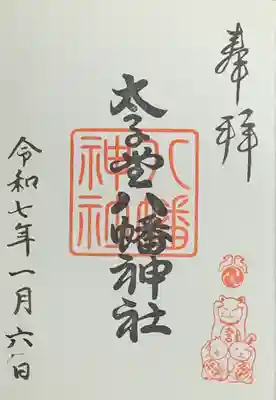 奉拝
太子堂八幡神社
八幡
神社
令和七年一月六日